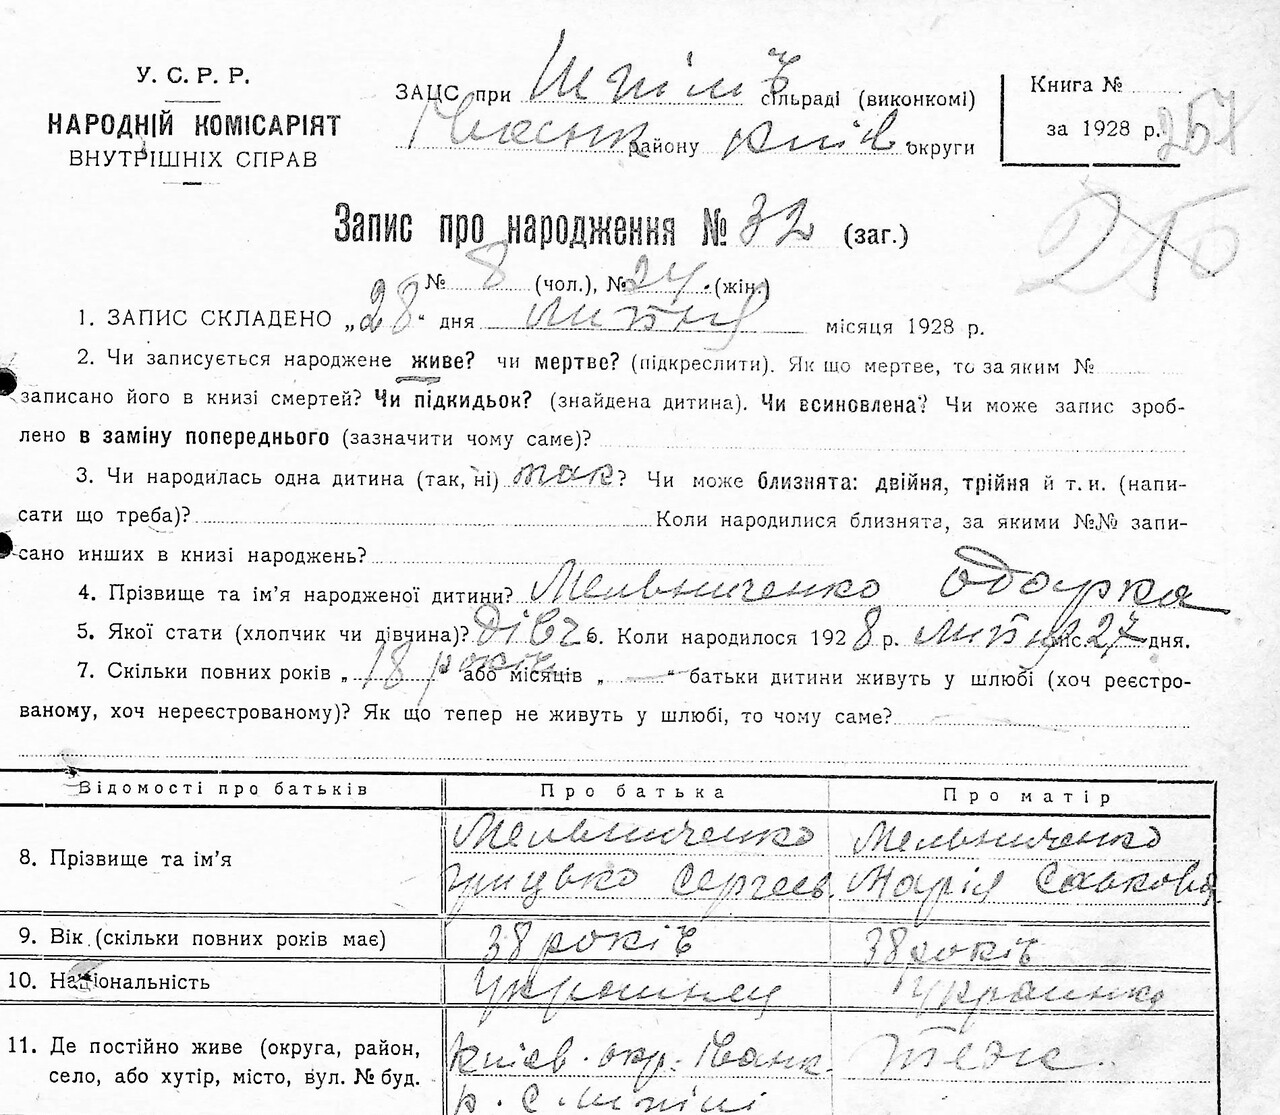 У. С. Р. Р.
НАРОДНІЙ КОМІСАРІЯТ
ВНУТРІШНІХ СПРАВ
ЗАЦС при Шпілів сільраді (виконкомі)
Іванк району Київ округи
Книга №
за 1928 р. 257
Запис про народження № 32 (заг.)
210
№ 8 (чол.), № 24. (жін.)
1. ЗАПИС СКЛАДЕНО „28“ дня липня місяця 1928 р.
2. Чи записується народжене живе? чи мертве? (підкреслити). Як що мертве, то за яким №
записано його в книзі смертей? Чи підкидьок? (знайдена дитина). Чи всиновлена? Чи може запис зроб-
лено в заміну попереднього (зазначити чому саме)?
3. Чи народилась одна дитина (так, ні) так? Чи може близнята: двійня, трійня й т. и. (напи-
сати що треба)? Коли народилися близнята, за якими №№ запи-
сано инших в книзі народжень?
4. Прізвище та ім’я народженої дитини? Мельниченко Одарка
5. Якої стати (хлопчик чи дівчина)? дівч 6. Коли народилося 1928 р. липня міс. 27 дня.
7. Скільки повних років „ 18 років або місяців „ — “ батьки дитини живуть у шлюбі (хоч реєстро-
ваному, хоч нереєстрованому)? Як що тепер не живуть у шлюбі, то чому саме?
Відомості про батьків Про батька Про матір
8. Прізвище та ім’я Мельниченко Грицько Сергеєв. Мельниченко Марія Савкова
9. Вік (скільки повних років має) 38 років 38 років
10. Національність Українец Українка
11. Де постійно живе (округа, район, Київ. окр. Іванк. Теж.
село, або хутір, місто, вул. № буд. р. с. Шпілі